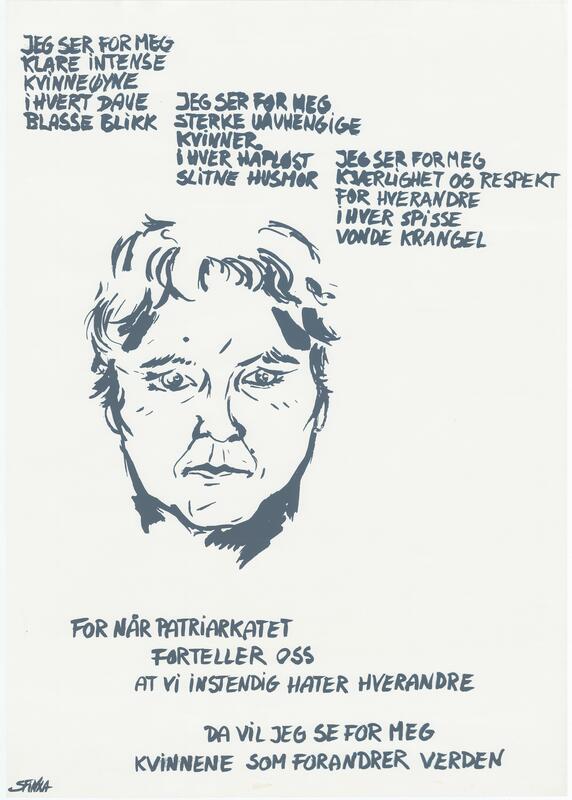 JEG SER FOR MEG
KLARE INTENSE
KVINNEØYNE
I HVERT DAUE
BLASSE BLIKK
JEG SER FØR MEG
STERKE UAVHENGIGE
KVINNER
I HVER HÅPLØST
SLITNE HUSMOR
JEG SER FOR MEG
KJÆRLIGHET OG RESPEKT
FOR HVERANDRE
I HVER SPISSE
VONDE KRANGEL
FOR NÅR PATRIARKATET
FØRTELLER OSS
AT VI INSTENDIG HATER HVERANDRE
DA VIL JEG SE FOR MEG
KVINNENE SOM FORANDRER VERDEN